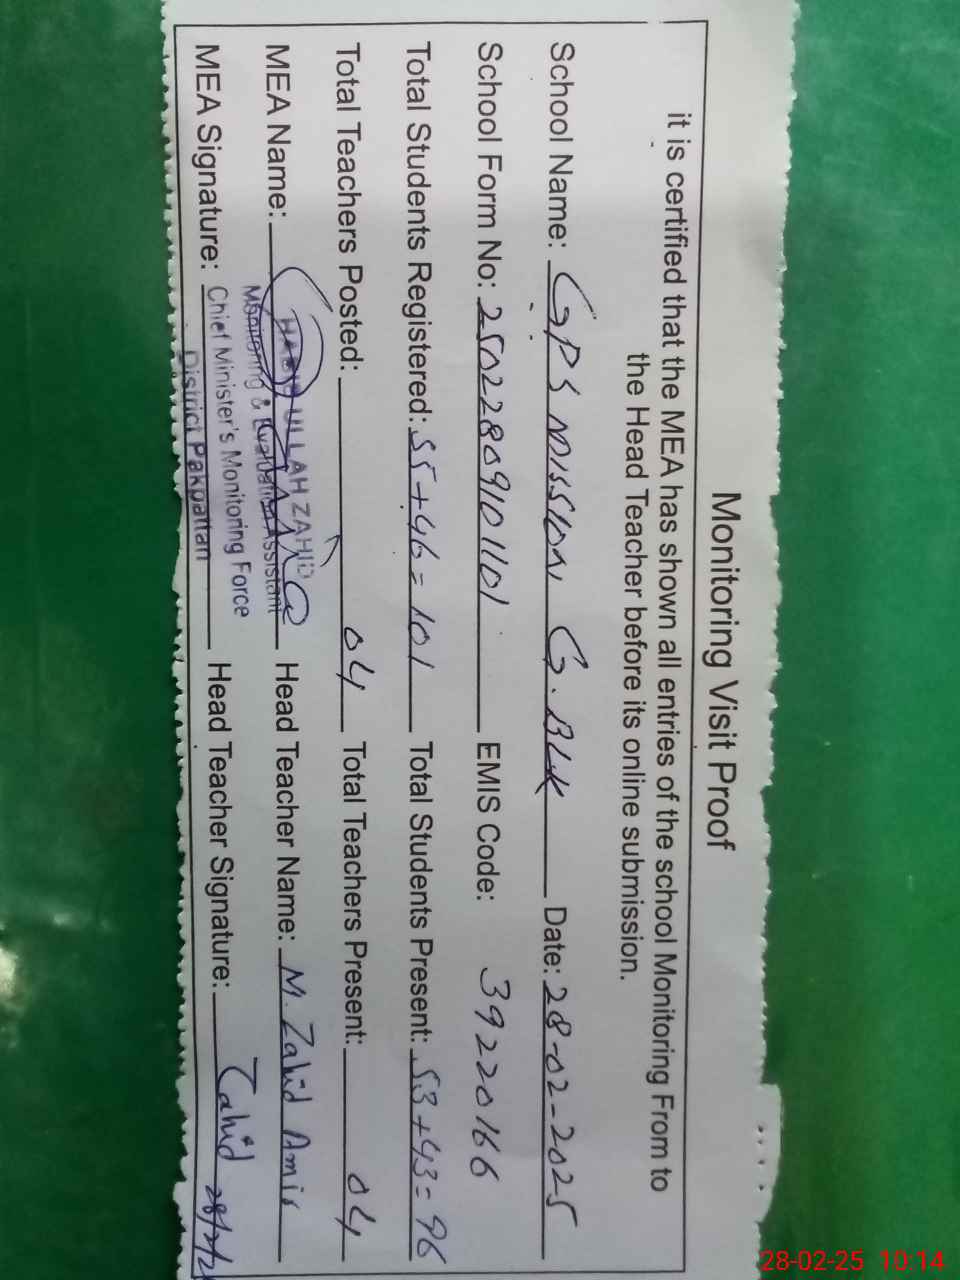 Monitoring Visit Proof
it is certified that the MEA has shown all entries of the school Monitoring From to
the Head Teacher before its online submission.
School Name: GPS Mission G. BLK Date: 28-02-2025
School Form No: 25022809101101 EMIS Code: 39220166
Total Students Registered: 55+46=101 Total Students Present: 53+43=96
Total Teachers Posted: 04 Total Teachers Present: 04
MEA Name: HABIB ULLAH ZAHID Head Teacher Name: M. Zahid Amir
Monitoring & Evaluation Assistant
MEA Signature: Chief Minister's Monitoring Force Head Teacher Signature: Zahid
District Pakpattan
28-02-25 10:14